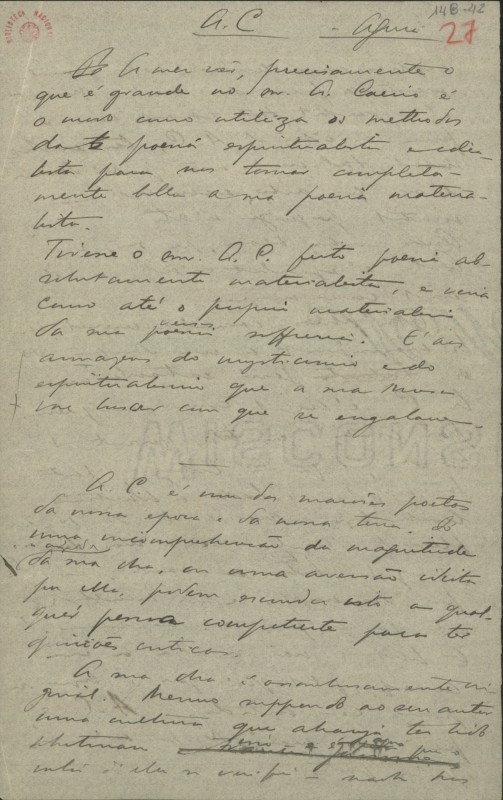 A. C. - Aguia
14B-42
27
A meu ver, precisamente o
que é grande no sr. A. Caeiro é
o modo como utiliza os methodos
da poesia espiritualista e
para nos tornar completa-
mente bella a sua poesia materia-
lista.
Tivesse o sr. A. C. feito poesia ab-
solutamente materialista, e veria
como até o proprio materialismo
da sua poesia soffreria. É aos
armazens do mysticismo e do
espiritualismo que a sua Musa
vae buscar com que se engalane.
A. C. é um dos maiores poetas
da nossa epoca e da nossa terra. Só
uma incomprehensão da magnitude
da sua obra, ou uma aversão
por ella, podem esconder isto a qual-
quer pessoa competente para ter
opiniões criticas.
A sua obra é assombrosamente ori-
ginal. Mesmo suppondo ao seu autor
uma cultura que abranja ter lido
Whitman